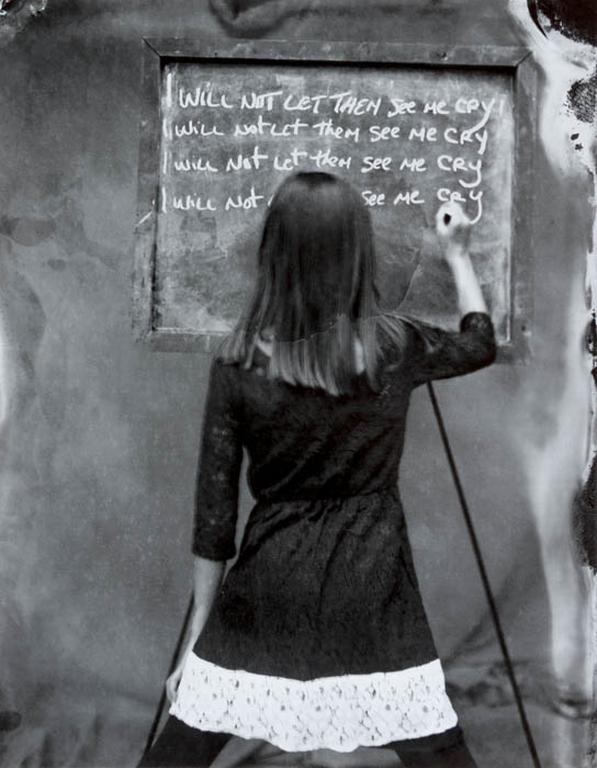 I WILL NOT LET THEM See Me CRY
I WILL Not Let them See Me CRY
I WILL Not Let them See Me CRY
I WILL Not See Me CRY